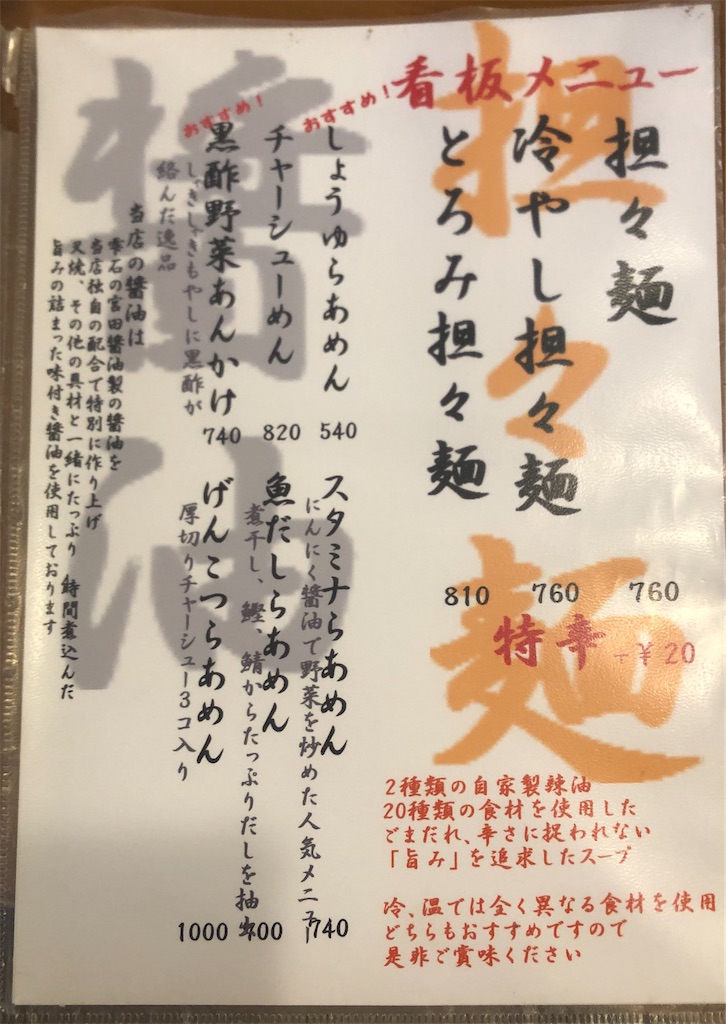 看板メニュー
担々麺
担々麺
760
冷やし担々麺
760
とろみ担々麺
810
特辛 +¥20
2種類の自家製辣油
20種類の食材を使用した
ごまだれ、辛さに捉われない
「旨み」を追求したスープ
冷、温では全く異なる食材を使用
どちらもおすすめですので
是非ご賞味ください
醤油
おすすめ!
しょうゆらあめん
540
チャーシューめん
820
おすすめ!
黒酢野菜あんかけ
740
しゃきしゃきもやしに黒酢が
絡んだ逸品
スタミナらあめん
にんにく醤油で野菜を炒めた人気メニュー
740
魚だしらあめん
煮干し、鰹、鯖からたっぷりだしを抽出
げんこつらあめん
厚切りチャーシュー3コ入り
1000
当店の醤油は
雫石の宮田醤油製の醤油を
当店独自の配合で特別に作り上げ
叉焼、その他の具材と一緒にたっぷり 時間煮込んだ
旨みの詰まった味付き醤油を使用しております